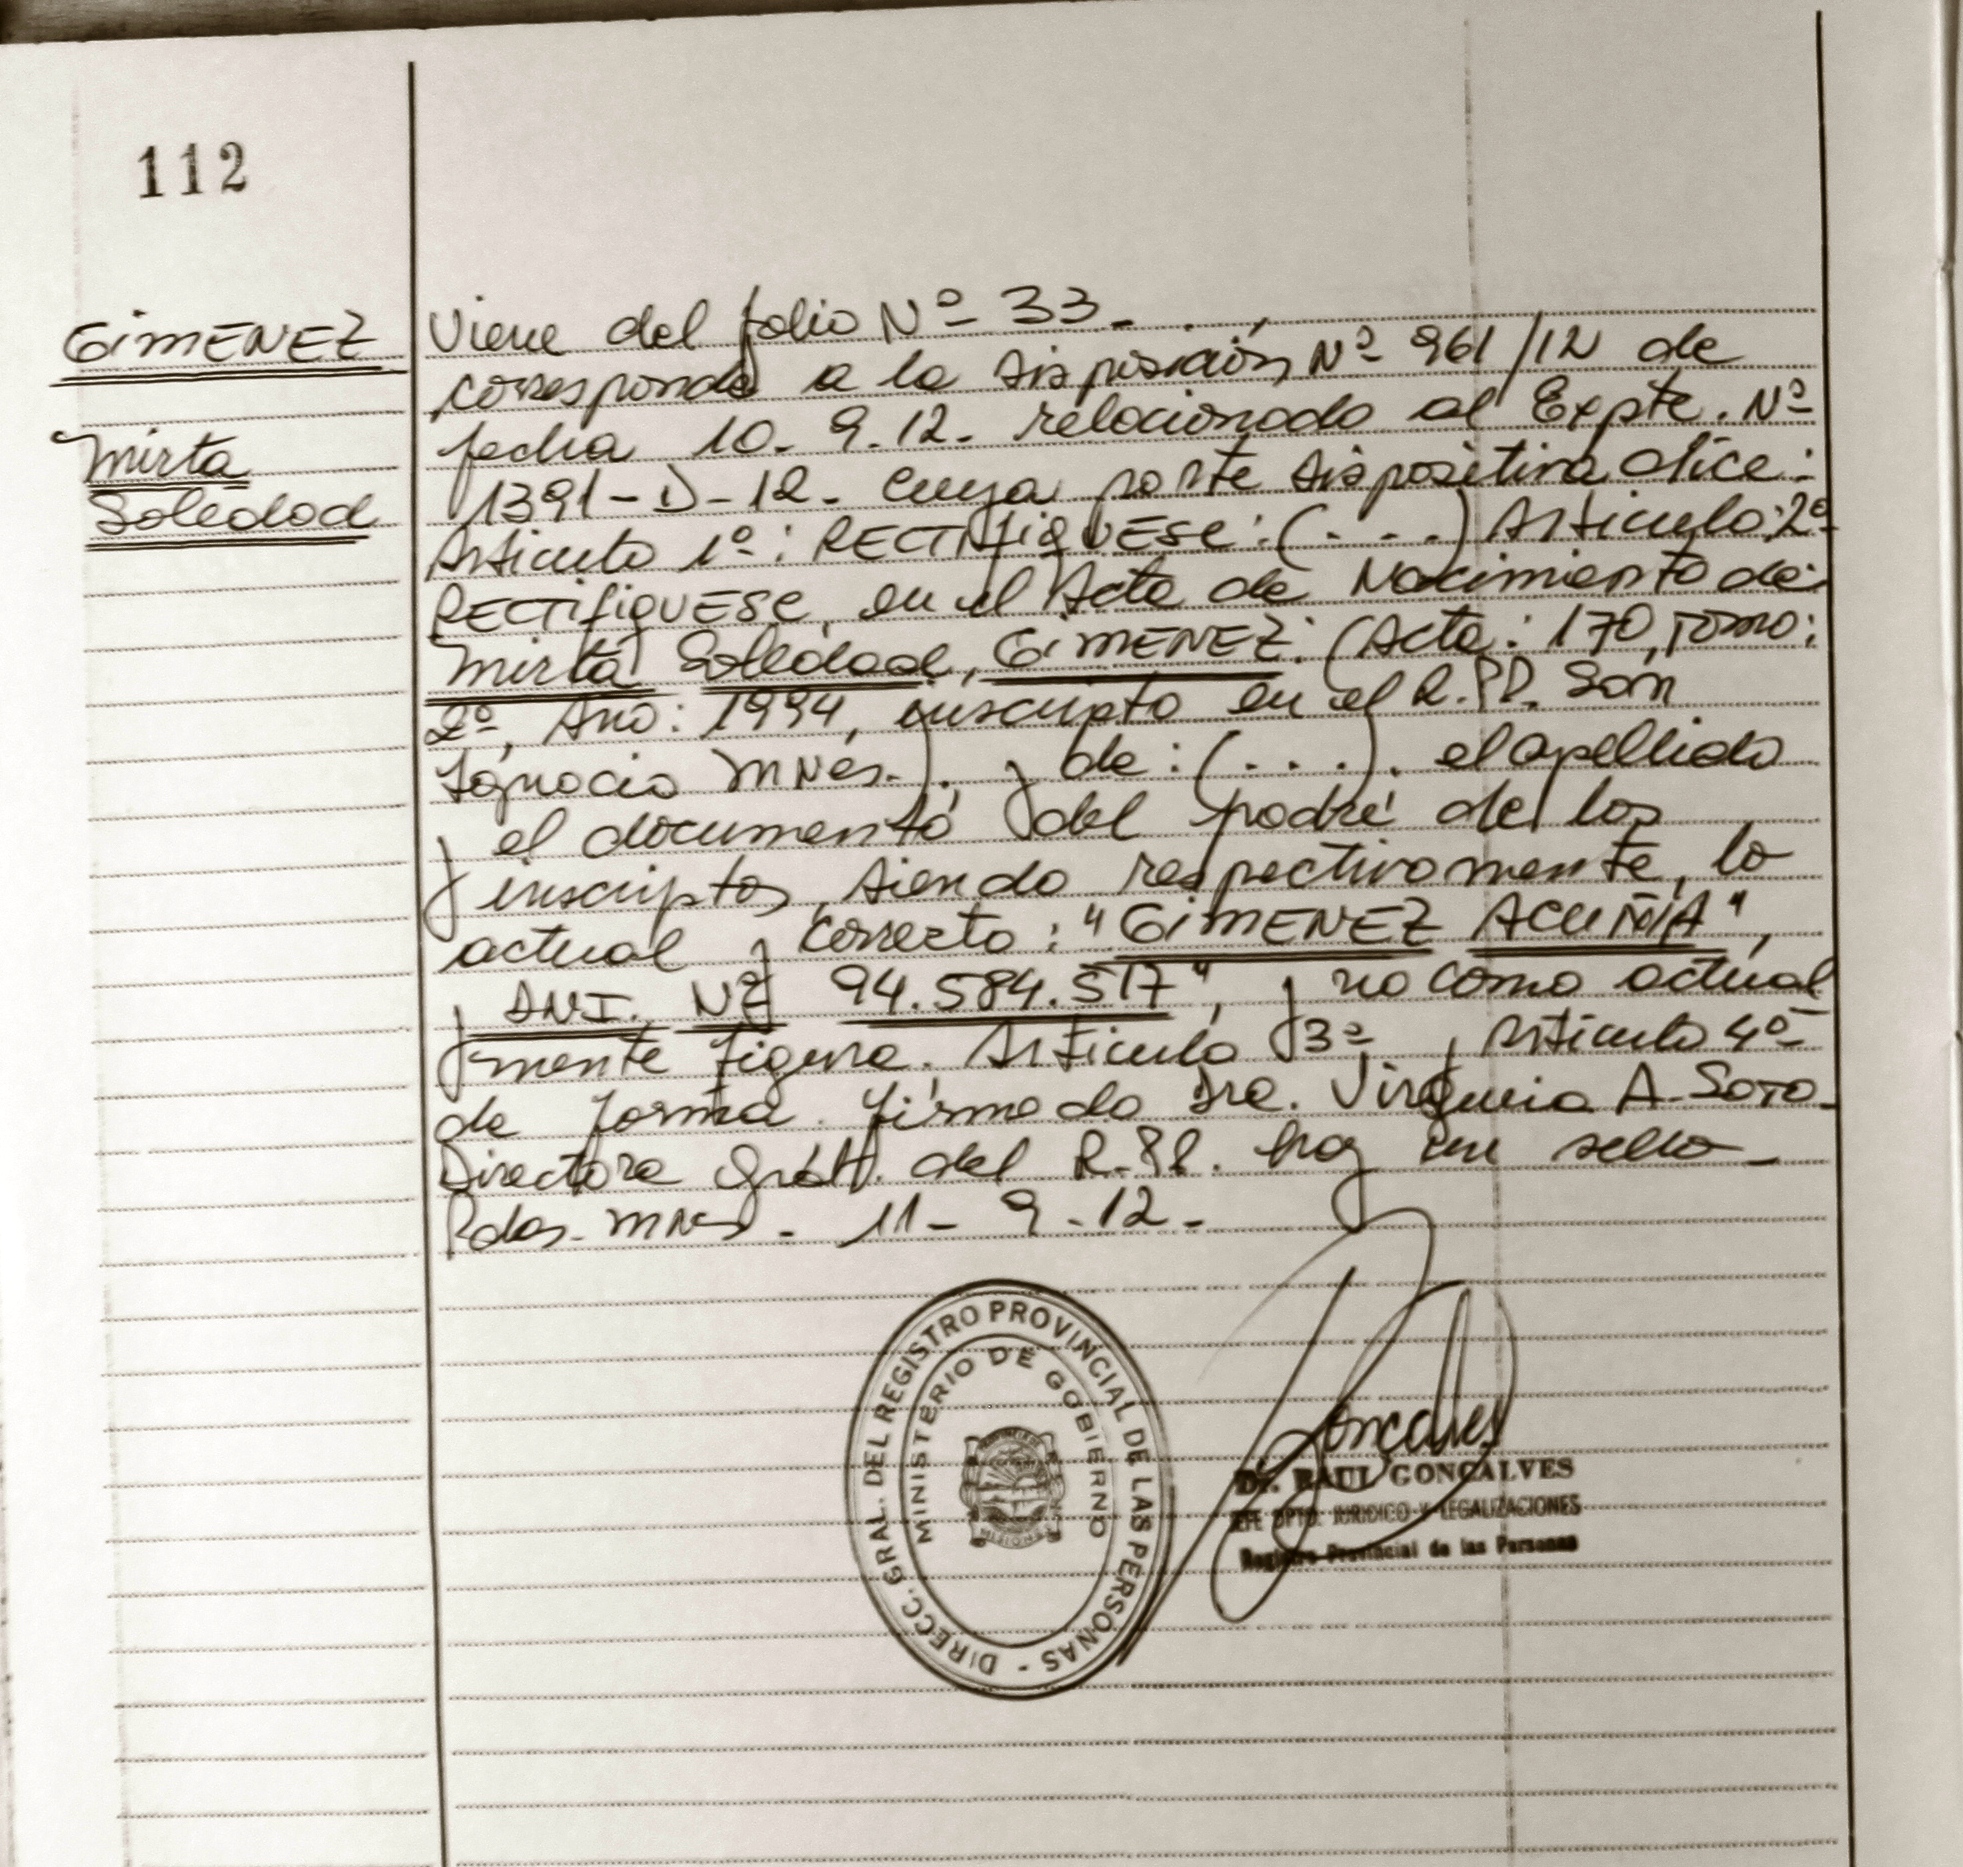 112
GIMENEZ
Mirta
Soledad
Viene del folio Nº 33-
corresponde a la Disposición Nº 961/12 de
fecha 10-9.12- relacionado al Expte. Nº
1391-D-12- Cuya parte Dispositiva dice:
Artículo 1º: RECTIFIQUESE: (...) Artículo: 2º
RECTIFIQUESE, en el Acta de Nacimiento de:
Mirta Soledad, GIMENEZ: (Acta: 170, Tomo:
2º, Año: 1994, inscripto en el R.P.P. San
Ignacio Mnes.). y de: (...). el apellido
y el documento del padre de los
inscriptos, siendo respectivamente, lo
actual y correcto: "GIMENEZ ACUÑA",
y DNI. Nº 94.584.517", y no como actual
mente figura. Artículo 3º y Artículo 4º
de forma. firmado Dra. Virginia A. Soto-
Directora Gral. del R.P.P. hay un sello-
Pdas. Mnes. - 11- 9.12-
DIRECC. GRAL. DEL REGISTRO PROVINCIAL DE LAS PERSONAS -
MINISTERIO DE GOBIERNO
MISIONES
Goncalves
Dr. RAUL GONCALVES
JEFE DPTO. JURIDICO Y LEGALIZACIONES
Registro Provincial de las Personas